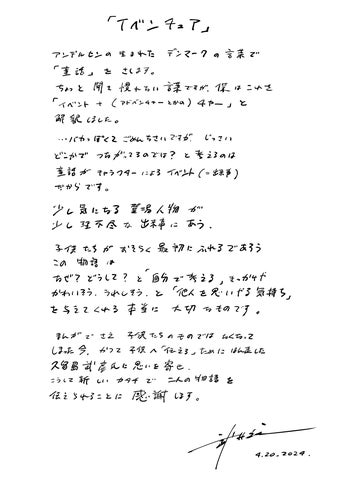 「イベンチュア」
アンデルセンの生まれた デンマークの言葉で
「童話」を さします。
ちょっと 聞き慣れない言葉ですが、僕はこれを
「イベント + (アドベンチャーとかの) チャー」と
解釈しました。
…バカっぽくて ごめんなさいですが、じっさい
どこかで つながってるのでは？ と 考えるのは
童話が キャラクターによる イベント (=出来事)
だからです。
少し気になる 登場人物 が
少し 理不尽な 出来事に あう。
子供たちが おそらく 最初に ふれるであろう
この 物語は
なぜ？どうして？と「自分で考える」きっかけや
かわいそう、うれしそう、と「他人を思いやる気持ち」
を与えてくれる 本当に 大切なものです。
まんがでさえ 子供たちのものではなくなって
しまった今、かつて 子供へ「伝える」ために
久留島 武彦氏に思いを寄せ
こうして 新しい カタチで 二人の物語を
伝えられることに 感謝します。
4.20.2024.